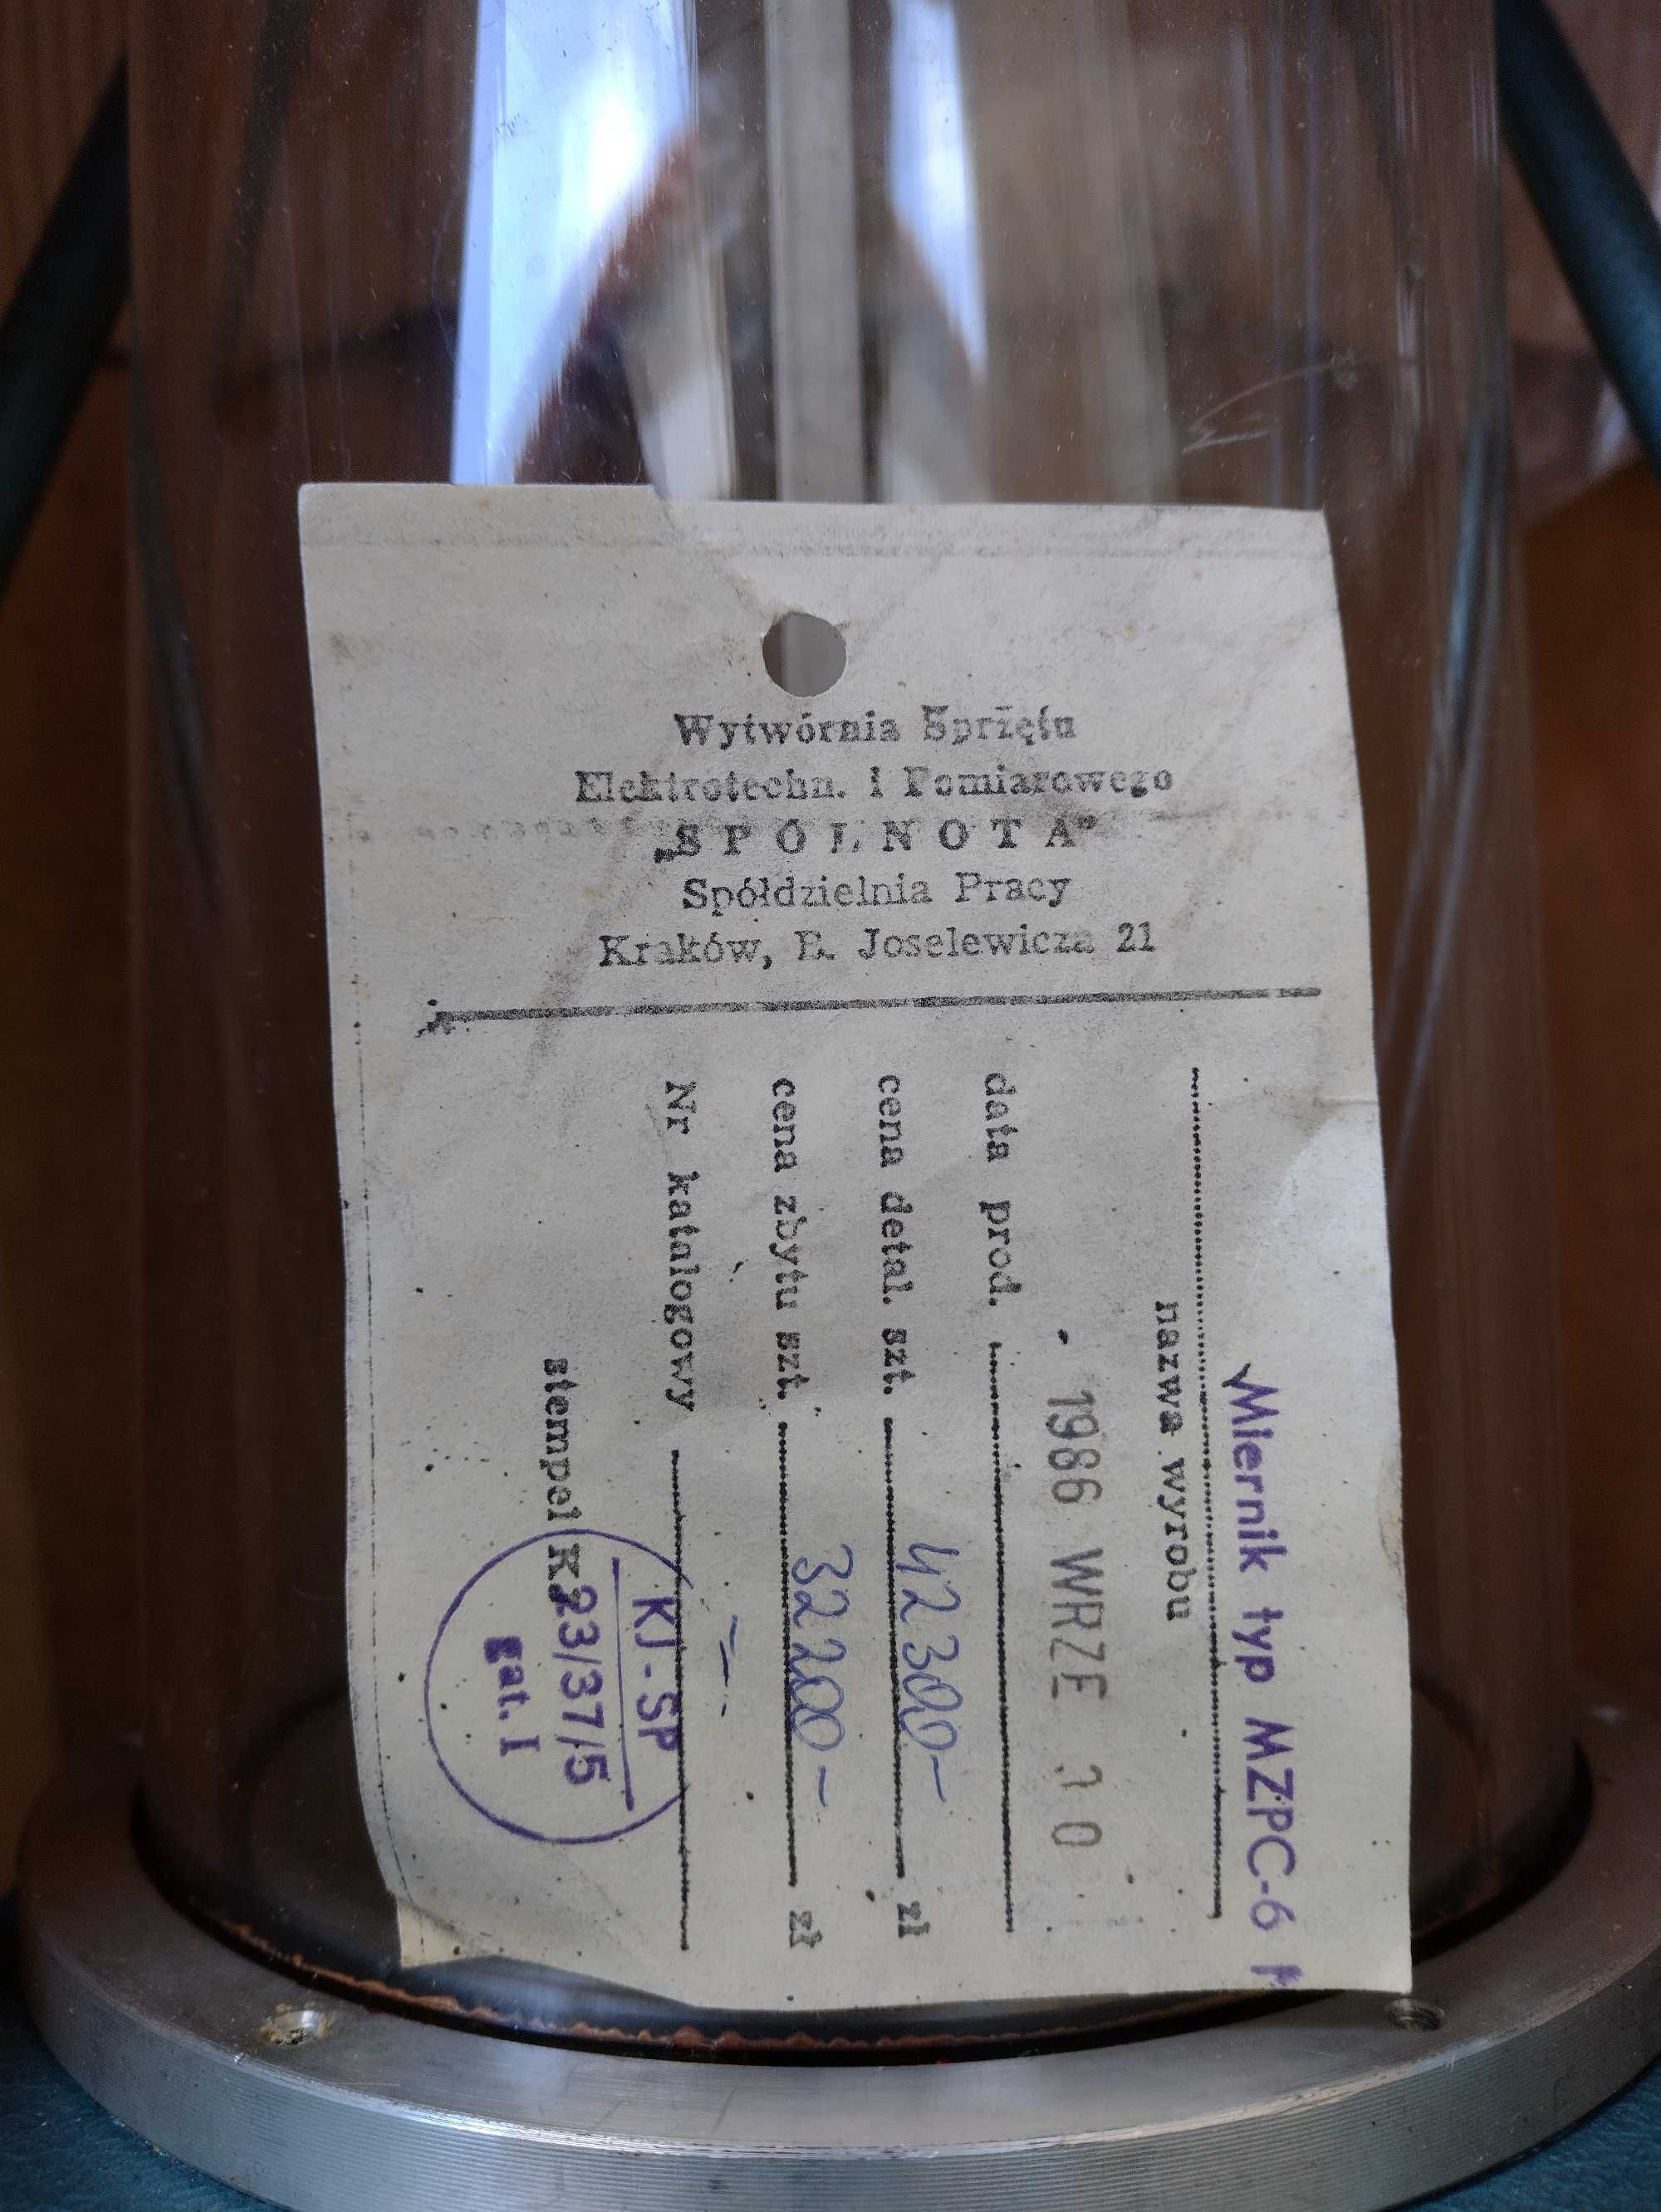 Wytwórnia Sprzętu
Elektrotechn. i Pomiarowego
„SPÓLNOTA”
Spółdzielnia Pracy
Kraków, B. Joselewicza 21
Miernik typ MZPC-6
nazwa wyrobu
1986 WRZE 10
data prod.
cena detal. szt. 42300- zł
cena zbytu szt. 32200- zł
Nr katalogowy -
stempel K
KJ-SP
23/37/5
gat. I